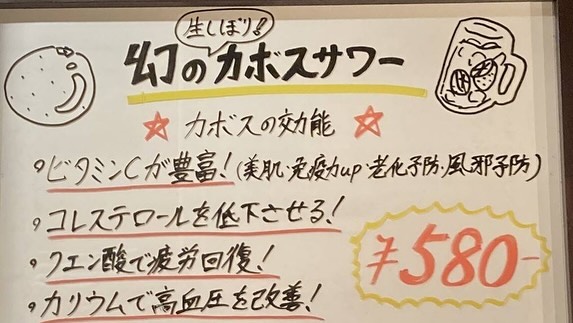 生しぼり!!
幻のカボスサワー
☆ カボスの効能 ☆
・ビタミンCが豊富! (美肌・免疫力up・老化予防・風邪予防)
・コレステロールを低下させる!
・クエン酸で疲労回復!
・カリウムで高血圧を改善!
¥580-